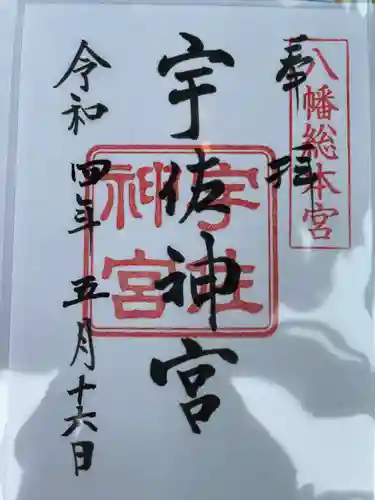 八幡総本宮
奉拝
宇佐神宮
宇佐
神宮
令和四年五月十六日